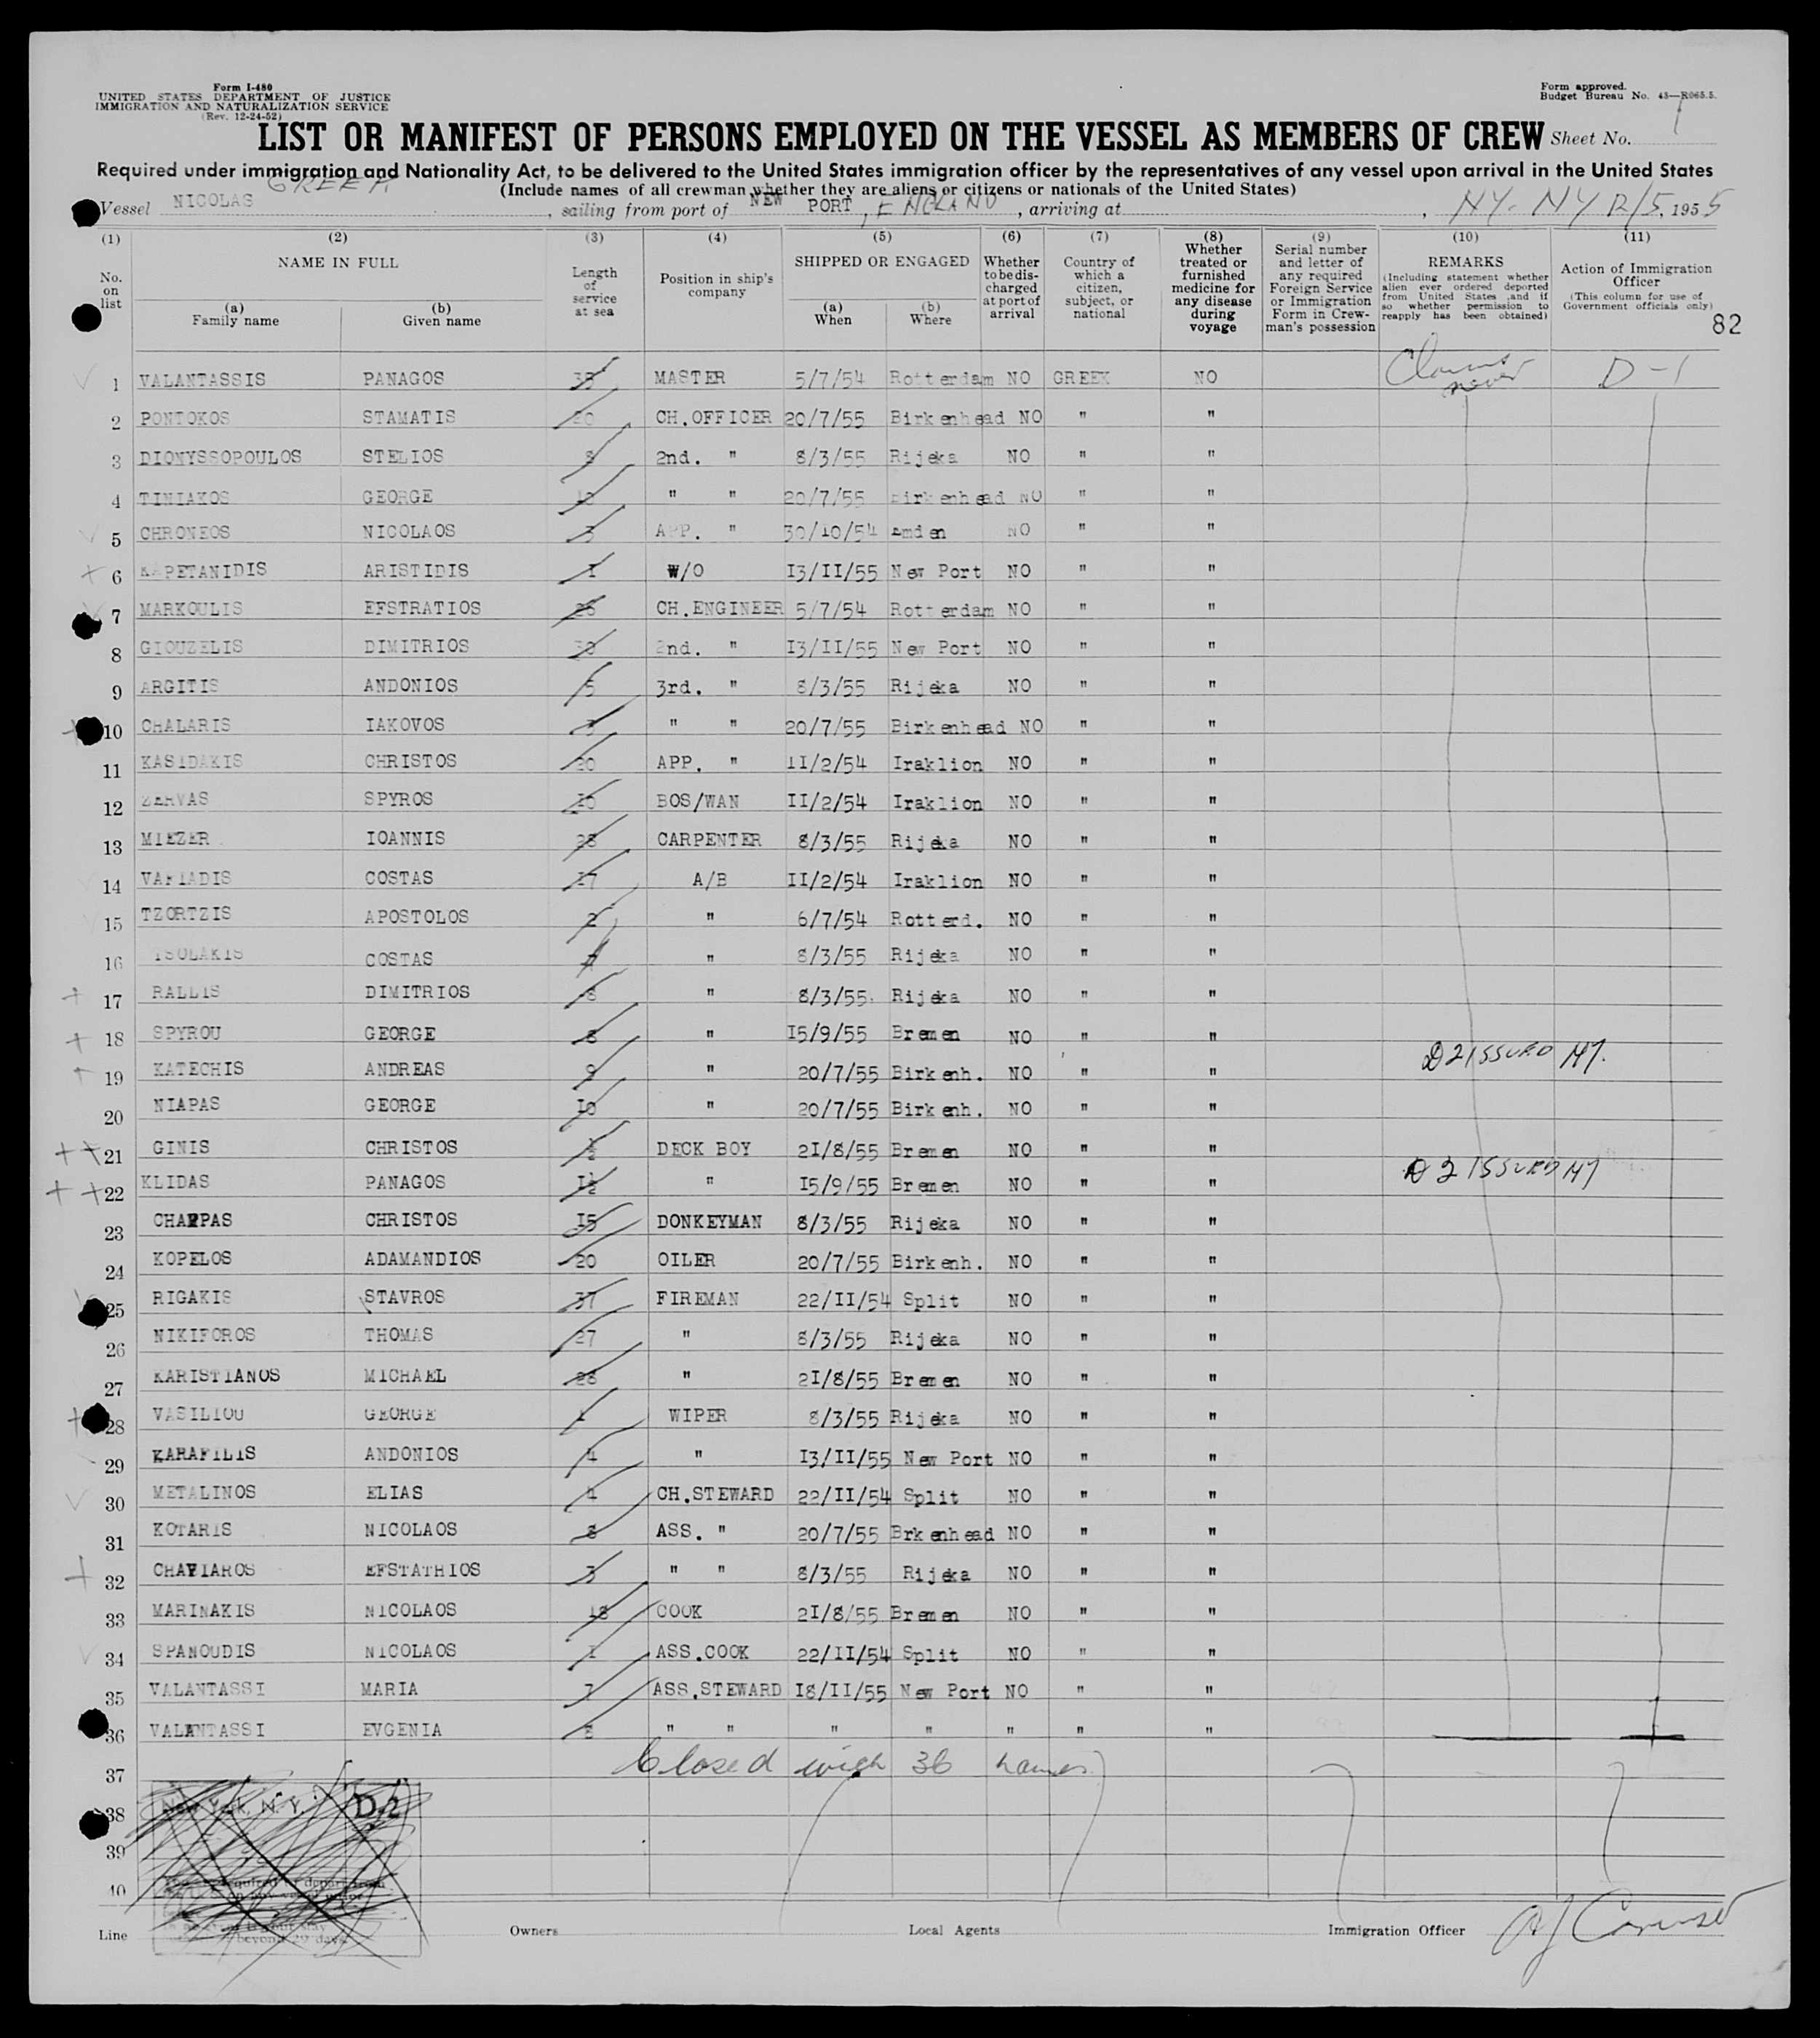 Form I-480
UNITED STATES DEPARTMENT OF JUSTICE
IMMIGRATION AND NATURALIZATION SERVICE
(Rev. 12-24-52)
Form approved.
Budget Bureau No. 43—R065.5.
LIST OR MANIFEST OF PERSONS EMPLOYED ON THE VESSEL AS MEMBERS OF CREW Sheet No. 1
Required under immigration and Nationality Act, to be delivered to the United States immigration officer by the representatives of any vessel upon arrival in the United States
(Include names of all crewman whether they are aliens or citizens or nationals of the United States)
GREEK
Vessel NICOLAS, sailing from port of NEW PORT, ENGLAND, arriving at NY. NY 12/5, 1955
(1) (2) (3) (4) (5) (6) (7) (8) (9) (10) (11)
No. on list
NAME IN FULL
(a) Family name
(b) Given name
Length of service at sea
Position in ship's company
SHIPPED OR ENGAGED
(a) When
(b) Where
Whether to be discharged at port of arrival
Country of which a citizen, subject, or national
Whether treated or furnished medicine for any disease during voyage
Serial number and letter of any required Foreign Service or Immigration Form in Crewman's possession
REMARKS
(Including statement whether alien ever ordered deported from United States, and if so whether permission to reapply has been obtained)
Action of Immigration Officer
(This column for use of Government officials only)
82
1 VALANTASSIS PANAGOS 35 MASTER 5/7/54 Rotterdam NO GREEK NO Claims never D-1
2 PONTOKOS STAMATIS 20 CH.OFFICER 20/7/55 Birkenhead NO " "
3 DIONYSSOPOULOS STELIOS 8 2nd. " 8/3/55 Rijeka NO " "
4 TINIAKOS GEORGE " " 20/7/55 Birkenhead NO " "
5 CHRONEOS NICOLAOS 3 APP. " 30/10/54 Emden NO " "
6 KAPETANIDIS ARISTIDIS I W/O I3/II/55 New Port NO " "
7 MARKOULIS EFSTRATIOS 26 CH.ENGINEER 5/7/54 Rotterdam NO " "
8 GIOUZELIS DIMITRIOS 30 2nd. " I3/II/55 New Port NO " "
9 ARGITIS ANDONIOS 5 3rd. " 8/3/55 Rijeka NO " "
10 CHALARIS IAKOVOS 3 " " 20/7/55 Birkenhead NO " "
11 KASIDAKIS CHRISTOS 20 APP. " 11/2/54 Iraklion NO " "
12 ZERVAS SPYROS I0 BOS/WAN II/2/54 Iraklion NO " "
13 MIEZER IOANNIS 28 CARPENTER 8/3/55 Rijeka NO " "
14 VAFIADIS COSTAS I7 A/B II/2/54 Iraklion NO " "
15 TZORTZIS APOSTOLOS 2 " 6/7/54 Rotterd. NO " "
16 TSOLAKIS COSTAS 7 " 8/3/55 Rijeka NO " "
17 RALLIS DIMITRIOS 8 " 8/3/55. Rijeka NO " "
18 SPYROU GEORGE 8 " I5/9/55 Bremen NO " "
19 KATECHIS ANDREAS 9 " 20/7/55 Birkenh. NO " " D2 ISSUED NY.
20 NIAPAS GEORGE I0 " 20/7/55 Birkenh. NO " "
21 GINIS CHRISTOS ½ DECK BOY 2I/8/55 Bremen NO " "
22 KLIDAS PANAGOS I½ " I5/9/55 Bremen NO " " D2 ISSUED NY
23 CHAPPAS CHRISTOS I5 DONKEYMAN 8/3/55 Rijeka NO " "
24 KOPELOS ADAMANDIOS 20 OILER 20/7/55 Birkenh. NO " "
25 RIGAKIS STAVROS 37 FIREMAN 22/II/54 Split NO " "
26 NIKIFOROS THOMAS 27 " 8/3/55 Rijeka NO " "
27 KARISTIANOS MICHAEL 28 " 2I/8/55 Bremen NO " "
28 VASILIOU GEORGE I WIPER 8/3/55 Rijeka NO " "
29 KARAFILIS ANDONIOS 4 " I3/II/55 New Port NO " "
30 METALINOS ELIAS 4 CH.STEWARD 22/II/54 Split NO " "
31 KOTARIS NICOLAOS 8 ASS. " 20/7/55 Brkenhead NO " "
32 CHAVIAROS EFSTATHIOS 3 " " 8/3/55 Rijeka NO " "
33 MARINAKIS NICOLAOS 18 COOK 2I/8/55 Bremen NO " "
34 SPANOUDIS NICOLAOS I ASS.COOK 22/II/54 Split NO " "
35 VALANTASSI MARIA 7 ASS.STEWARD I8/II/55 New Port NO " "
36 VALANTASSI EVGENIA " " " " " " "
37 Closed with 36 names
38
39
40
New York, N.Y. D-2
beyond 29 days
Line Owners Local Agents Immigration Officer AJ Caruso